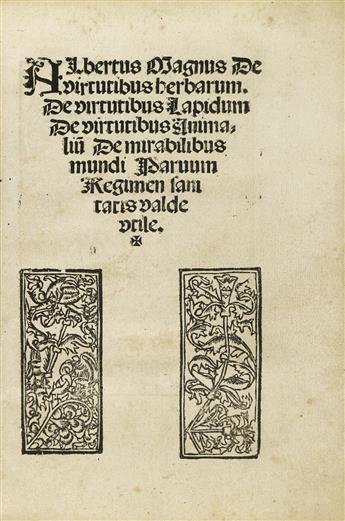 Albertus Magnus De
virtutibus herbarum.
De virtutibus Lapidum
De virtutibus Anima-
liū De mirabilibus
mundi Paruum
Regimen sani
tatis valde
vtile.